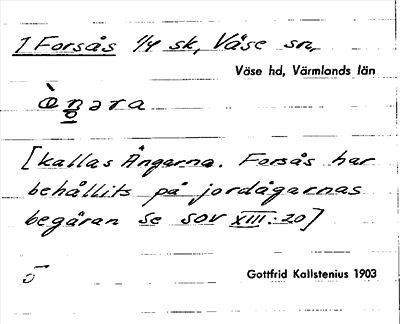 1 Forsås 1/4 sk, Väse sn,
Väse hd, Värmlands län
[kallas Ångarna. Forsås har
behållits på jordägarnas
begäran se SOV XIII:20]
Gottfrid Kallstenius 1903